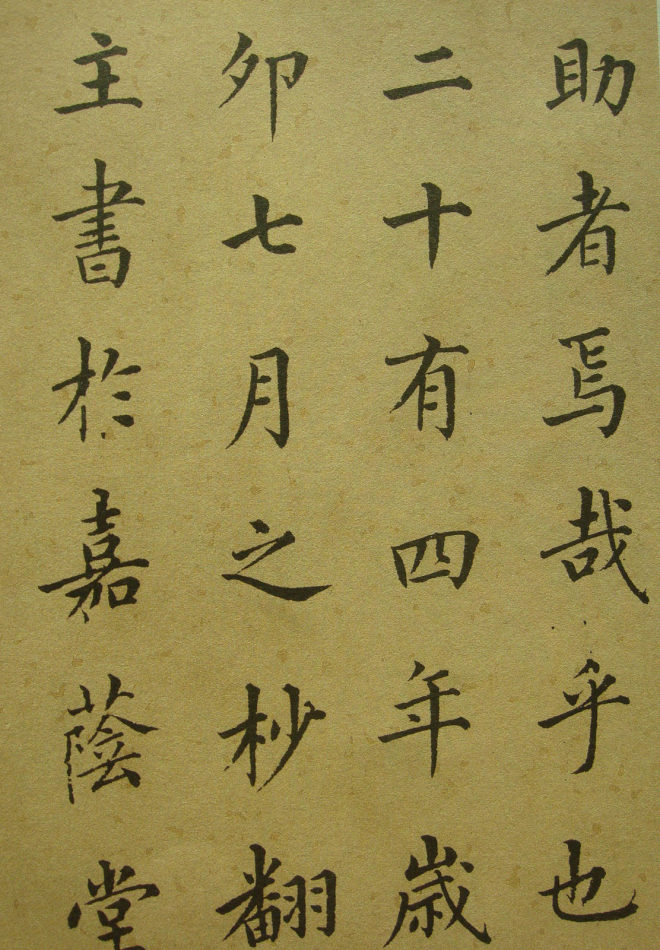 助者焉哉乎也
二十有四年歲
卯七月之杪翻
主書於嘉蔭堂